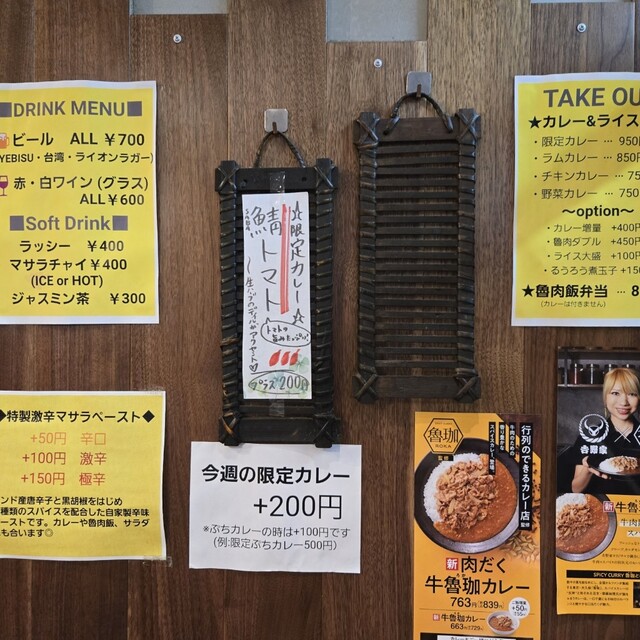 ■DRINK MENU■
ビール ALL ￥700
YEBISU・台湾・ライオンラガー)
赤・白ワイン (グラス)
ALL￥600
■Soft Drink■
ラッシー ￥400
マサラチャイ￥400
(ICE or HOT)
ジャスミン茶 ￥300
◆特製激辛マサラペースト◆
+50円 辛口
+100円 激辛
+150円 極辛
ンド産唐辛子と黒胡椒をはじめ
種類のスパイスを配合した自家製辛味
ーストです。カレーや魯肉飯、サラダ
も合います◎
☆限定カレー☆
鯖トマト
トマトの
旨みたっぷり!
プラス200円
今週の限定カレー
+200円
※ぷちカレーの時は+100円です
(例:限定ぷちカレー500円)
TAKE OU
★カレー&ライス
・限定カレー … 950円
・ラムカレー … 850円
・チキンカレー … 75
・野菜カレー … 750
〜option〜
・カレー増量 +400円
・魯肉ダブル +450円
・ライス大盛 +100円
・るうろう煮玉子 +150
★魯肉飯弁当 … 8
(カレーは付きません)
魯珈
ROKA
監修
行列のできるカレー店
監修
牛肉のための
スパイスカレー。
新 肉だく
牛魯珈カレー
763円
839円
新 牛魯珈カレー
663円
729円
吉野家
新 牛
SPICY CURRY 魯珈